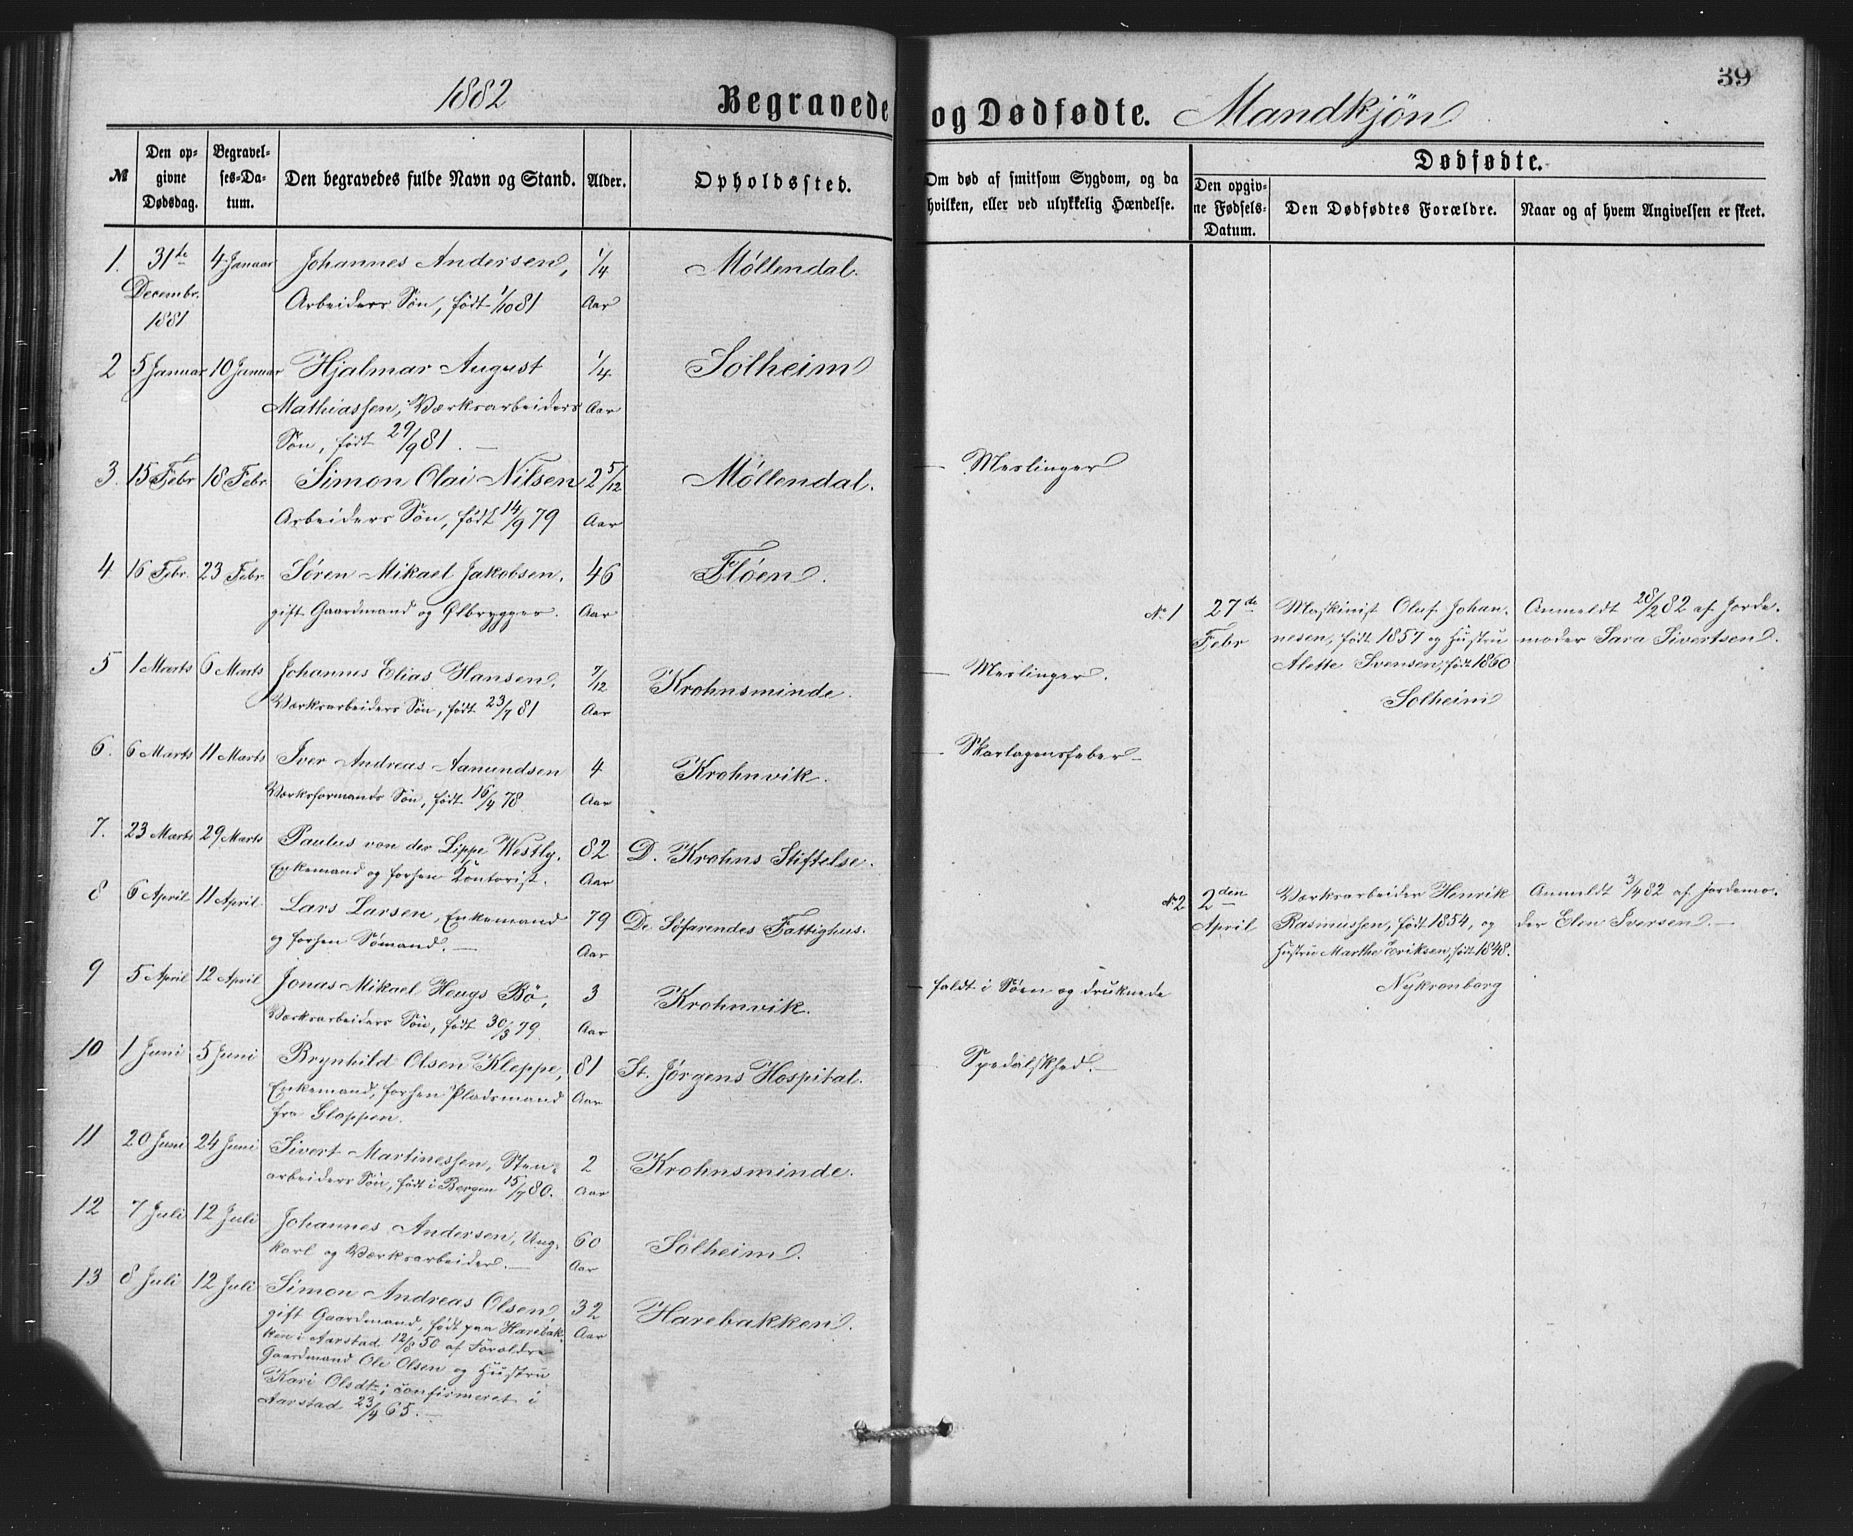 1882
Begravede og Dødfødte. Mandkjøn
39
№
Den opgivne Dødsdag.
Begravelses-Datum.
Den begravedes fulde Navn og Stand.
Alder.
Opholdssted.
Om død af smitsom Sygdom, og da
hvilken, eller ved ulykkelig Hændelse.
Dødfødte.
Den opgivne Fødsels-Datum.
Den Dødfødtes Forældre.
Naar og af hvem Angivelsen er skeet.
1. 31te 4 Januar Johannes Andersen, 1/4 Møllendal.
Decembr. Arbeiders Søn, født 1/10 81 Aar
1881
2 5 Januar 10 Januar Hjalmar August 1/4 Solheim
Mathiassen, Værksarbeiders Aar
Søn, født 29/9 81. —
3. 15 Febr 18 Febr Simon Olai Nilsen 2 5/12 Møllendal. — Meslinger
Arbeiders Søn, født 14/9 79 Aar
4 16 Febr. 23 Febr. Søren Mikael Jakobsen, 46 Fløen.
gift Gaardmand og Ølbrygger. Aar
№ 1 27de Maskinist Oluf Johan- Anmeldt 28/2 82 af Jorde-
Febr nesen, født 1857 og Hustru moder Sara Sivertsen.
Alette Svensen, født 1860
Solheim
5 1 Marts 6 Marts Johannes Elias Hansen, 7/12 Krohnsminde. — Meslinger.
Værksarbeiders Søn, født 23/7 81 Aar
6. 6 Marts 11 Marts Iver Andreas Aamundsen 4 Krohnvik. — Skarlagensfeber —
Værksformands Søn, født 16/4 78. Aar
7. 23 Marts 29 Marts Paulus von der Lippe Westly, 82 D. Krohns Stiftelse.
Enkemand og forhen Kontorist. Aar
8 6 April 11 April Lars Larsen, Enkemand 79 De Søfarendes Fattighus.
og forhen Sømand. — Aar
№ 2 2den Værksarbeider Henrik Anmeldt 3/4 82 af Jordemo-
April Rasmussen, født 1854, og der Elen Iversen. —
Hustru Marthe Eriksen, født 1848.
Nykronborg
9 5 April 12 April Jonas Mikael Hougs Bö, 3 Krohnvik. faldt i Søen og druknede
Værksarbeiders Søn, født 30/3 79. Aar
10 1 Juni 5 Juni Brynhild Olsen Kleppe, 81 St. Jørgens Hospital. — Spedalskhed. —
Enkemand, forhen Pladsmand Aar
fra Gloppen.
11 20 Juni 24 Juni Sivert Martinessen, Sten- 2 Krohnsminde.
arbeiders Søn, født i Bergen 15/7 80. Aar
12 7 Juli 12 Juli Johannes Andersen, Ung- 60 Solheim.
karl og Værksarbeider. — Aar
13 8 Juli 12 Juli Simon Andreas Olsen, 32 Harebakken.
gift Gaardmand, født paa Harebak- Aar
ken i Aarstad 12/8 50 af Forældre
Gaardmand Ole Olsen og Hustru
Kari Olsdt.; confirmeret i
Aarstad 23/4 65. —